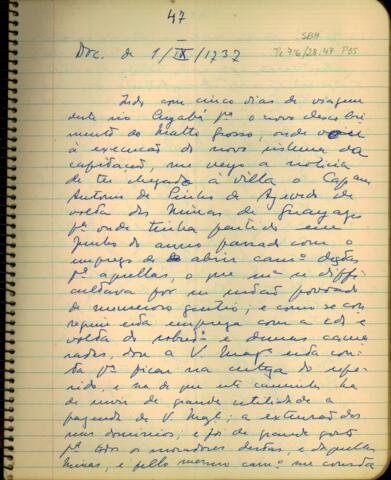 47
SBH
Pi 76/28.47 P05
Doc. de 1/IX/1737
Indo com cinco dias de viagem
deste rio Cuyabá pª o novo descobri
mento do Matto Grosso, onde
à execução do novo sistema da
capitação, me veyo a noticia
de ter chegado à villa o Capam
Antonio de Pinho de Azevedo de
volta das Minas de Guayazes
pª onde tinha partido em
Junho do anno passado com o
emprego de abrir camº destas
pª aquellas, o que mto se diffi
cultava por ser sertão povoado
de numeroso gentio; e como se con
seguiu esta empreza com a ida e
volta do sobredito e demais cama
radas, dou a V. Magde esta con
ta pª ficar na certeza do refe
rido, e na de que este caminho ha
de servir de grande utilidade a
fazenda de V. Magde; a extensão dos
seus dominios; e foi de grande gosto
pª todos os moradores destas, e daquellas
Minas, e pello mesmo camº me consta